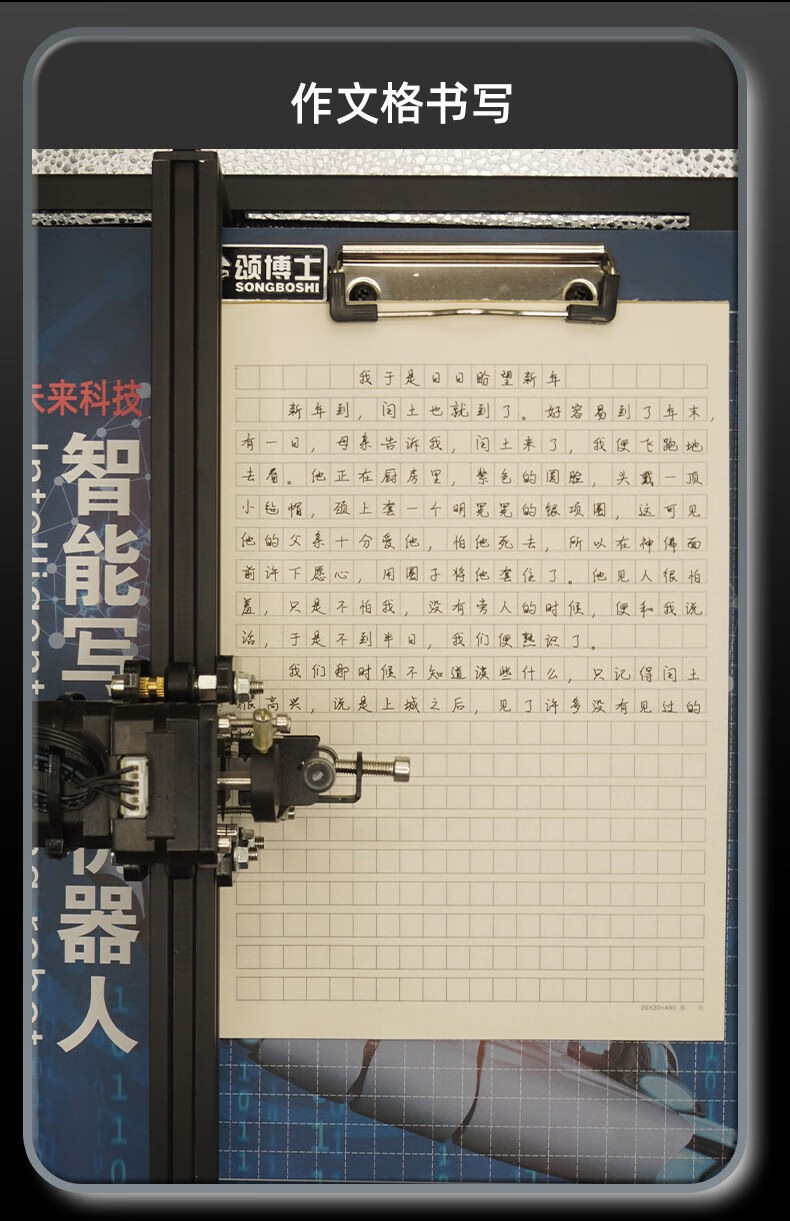 作文格书写
颂博士
SONGBOSHI
未来科技
智能写
机器人
Intelligent
robot
我于是日日盼望新年
新年到，闰土也就到了。好容易到了年末，
有一日，母亲告诉我，闰土来了，我便飞跑地
去看。他正在厨房里，紫色的圆脸，头戴一顶
小毡帽，颈上套一个明晃晃的银项圈，这可见
他的父亲十分爱他，怕他死去，所以在神佛面
前许下愿心，用圈子将他套住了。他见人很怕
羞，只是不怕我，没有旁人的时候，便和我说
话，于是不到半日，我们便熟识了。
我们那时候不知道谈些什么，只记得闰土
很高兴，说是上城之后，见了许多没有见过的
20X20=400